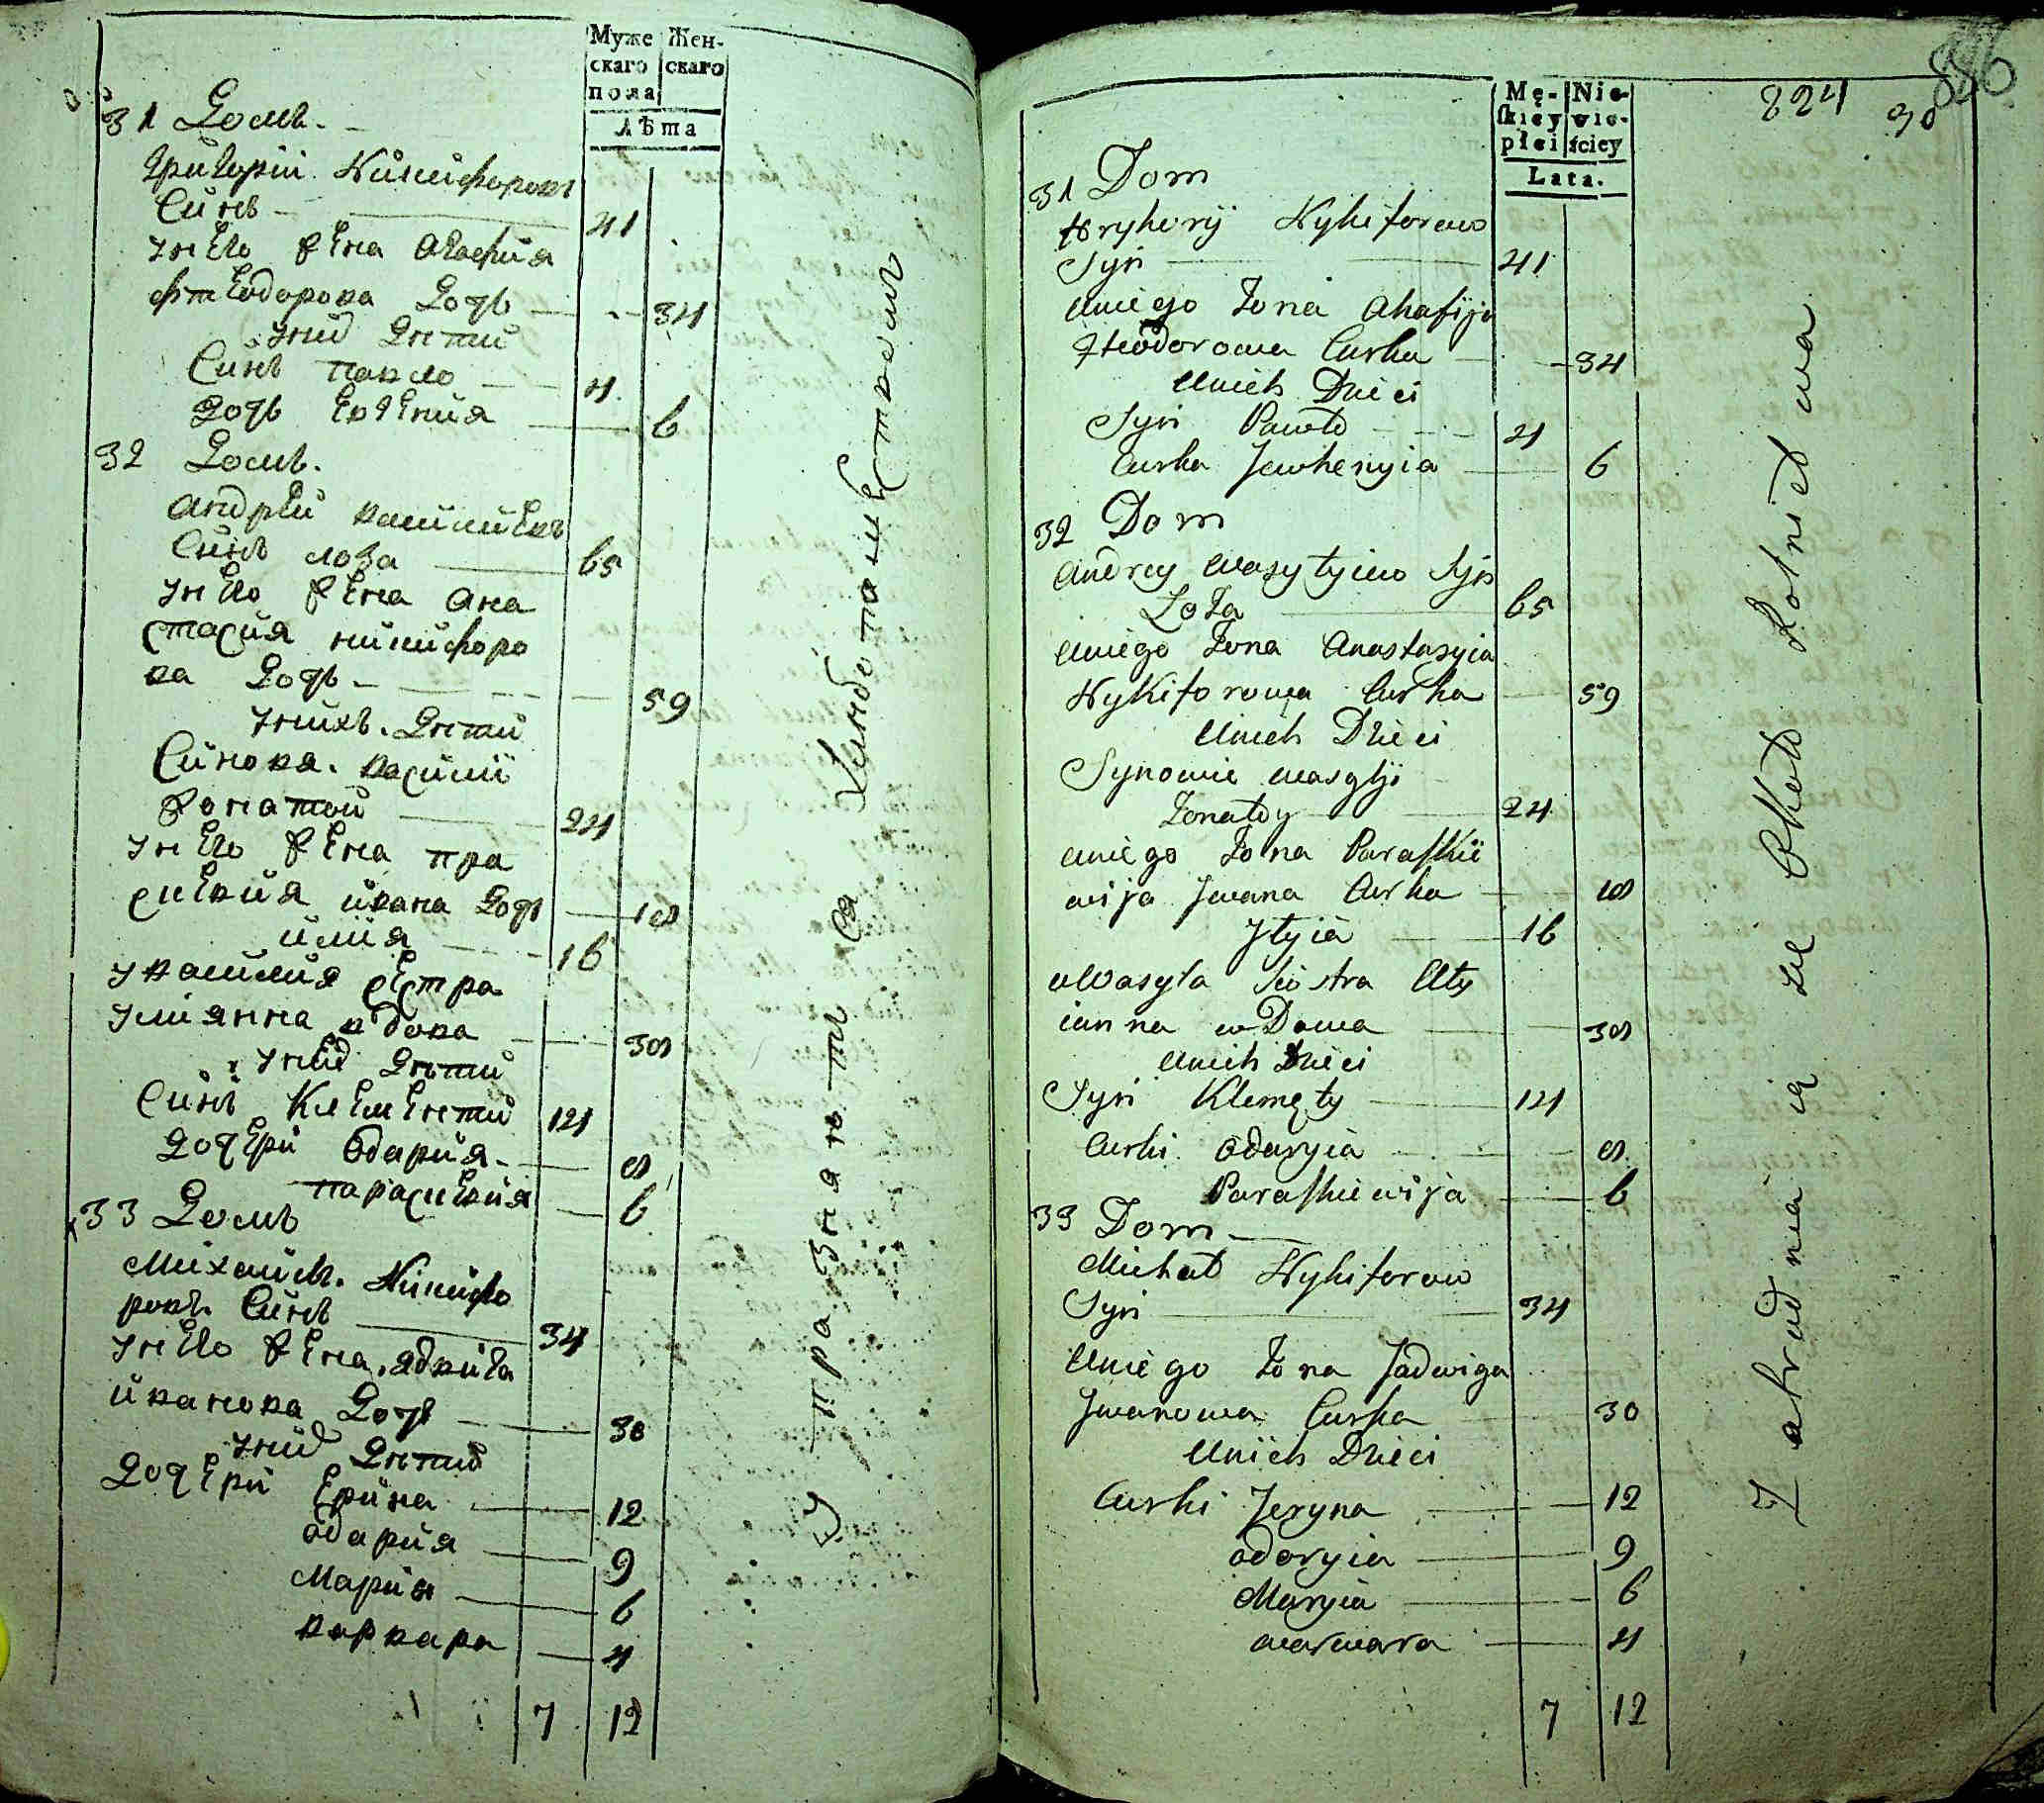 Муже
скаго
пола
Жен-
скаго
Лѣта
31 Домъ.
Григорій Никифоровъ
Синъ 41
унего жена Агафия
Фтеодорова Дочь 34
уних Дѣти
Синъ Павло 4
Дочь Евгения 6
32 Домъ.
Андрей Василиевъ
Синъ Лоза 65
унего жена Ана
стасия Никифоро
ва Дочь 59
унихъ. Дѣти
Синова. Василий
Жонатой 24
унего жена Пра
скевия Ивана Дочь 18
Илия 16
у Василия сестра
Улиянна вдова 38
уних Дѣти
Синъ Клементий 14
Дочери Одария 8
Параскевия 6
33 Домъ
Михаилъ. Никифо
ровъ. Синъ 34
унего жена. Ядвига
Иванова Дочь 30
уних Дѣти
Дочери Ерина 12
Одария 9
Мария 6
Варвара 4
7 12
Mę-
skiey
płci
Nie-
wie-
ściey
Lata.
824
90
886
31 Dom
Hryhory Nykiforow
Syn 41
uniego Żona Ahafija
Fteodorowa Curka 34
Unich Dzieci
Syn Pawło 4
Curka Jewhenyia 6
32 Dom
Andrey Wasyłyiew Syn
Łoza 65
uniego Żona Anastasyia
Nykiforowa Curka 59
Unich Dzieci
Synowie Wasylÿ
Żonaty 24
uniego Żona Paraskie
wija Jwana Curka 18
Jłyia 16
u Wasyla Siostra Uly
ianna w Dowa 38
Unich Dzieci
Syn Klemęty 14
Curki. Odaryia 8
Paraskiewija 6
33 Dom
Michał Nykiforow
Syn 34
Uniego Żona Jadwiga
Jwanowa Curka 30
Unich Dzieci
Curki Jeryna 12
Odaryia 9
Maryia 6
Warwara 4
7 12